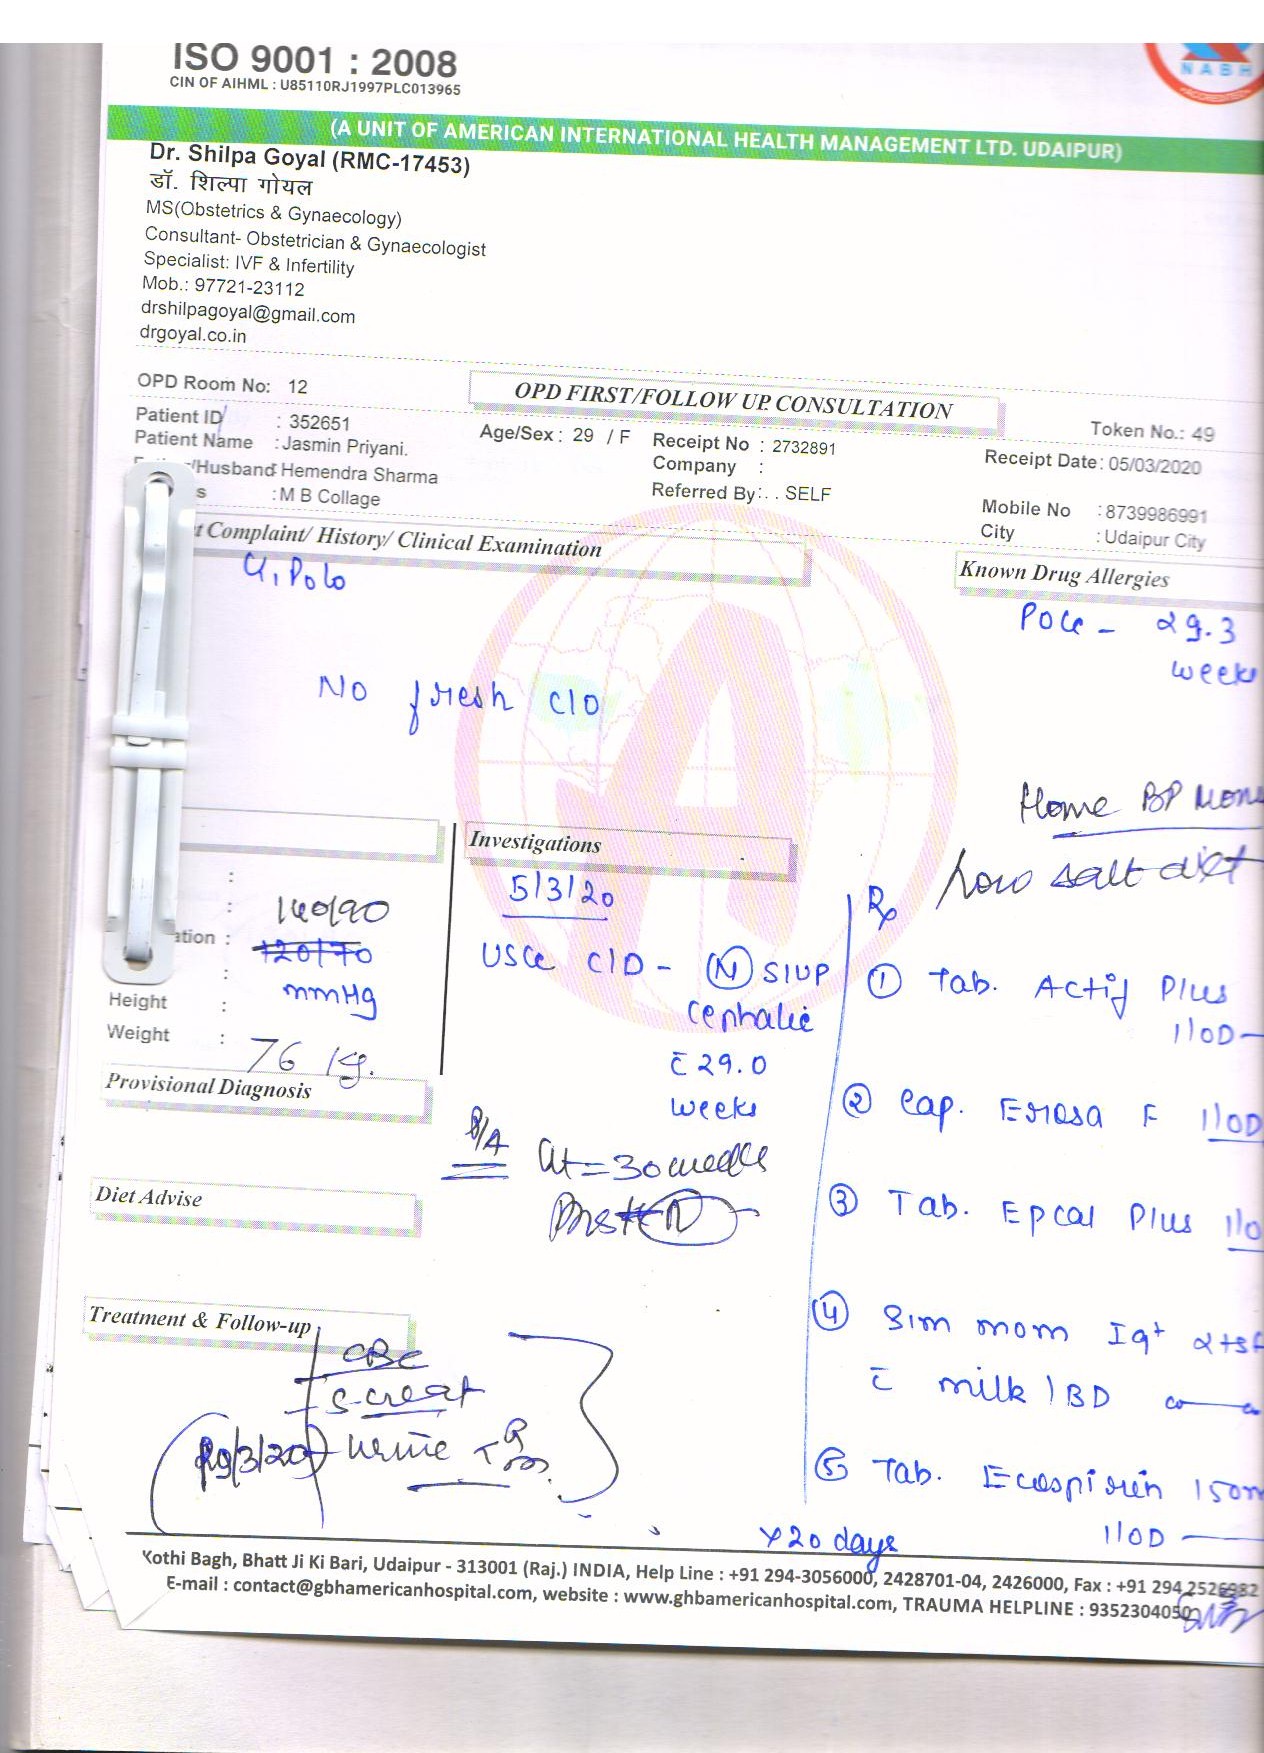 ISO 9001 : 2008
CIN OF AIHML : U85110RJ1997PLC013965
NABH
(A UNIT OF AMERICAN INTERNATIONAL HEALTH MANAGEMENT LTD. UDAIPUR)
Dr. Shilpa Goyal (RMC-17453)
डॉ. शिल्पा गोयल
MS(Obstetrics & Gynaecology)
Consultant- Obstetrician & Gynaecologist
Specialist: IVF & Infertility
Mob.: 97721-23112
drshilpagoyal@gmail.com
drgoyal.co.in
OPD Room No: 12
OPD FIRST/FOLLOW UP CONSULTATION
Token No.: 49
Patient ID : 352651
Age/Sex : 29 / F
Receipt No : 2732891
Receipt Date: 05/03/2020
Patient Name : Jasmin Priyani.
Company :
/Husband: Hemendra Sharma
Referred By: . . SELF
Mobile No : 8739986991
s : M B Collage
City : Udaipur City
t Complaint/ History/ Clinical Examination
Known Drug Allergies
G1P0L0
POG - 29.3
weeks
No fresh C/O
Home BP
Low salt diet
Investigations
5/3/20
Rx
140/90
ation : 120/70
mmHg
USG C/D - (N) SIUP
Cephalic
c̄ 29.0
weeks
① Tab. Actif Plus
1 OD
Height :
Weight : 76 kg.
Provisional Diagnosis
② Cap. F 1 OD
P/A
= 30 weeks
Diet Advise
③ Tab. Epcal Plus
Treatment & Follow-up
④ Sim mom IQ+
c̄ milk BD
CBC
S. creat
Urine R
m.
29/3/20
⑤ Tab. Ecospirin 150m
1 OD
x 20 days
Kothi Bagh, Bhatt Ji Ki Bari, Udaipur - 313001 (Raj.) INDIA, Help Line : +91 294-3056000, 2428701-04, 2426000, Fax : +91 294 2526982
E-mail : contact@gbhamericanhospital.com, website : www.ghbamericanhospital.com, TRAUMA HELPLINE : 9352304050